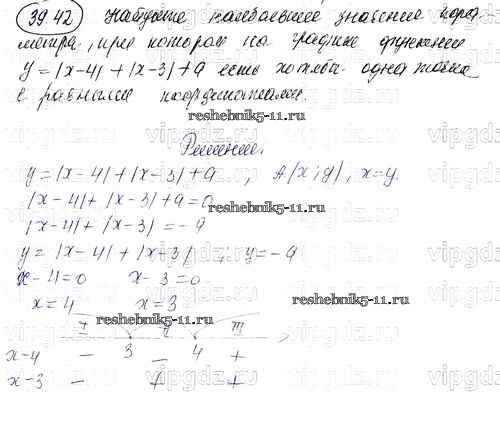 39.42 Найдите наибольшее значение пара
метра, при котором на графике функции
y = |x-4| + |x-3| + a есть хотя бы одна точка
с равными координатами.
reshebnik5-11.ru
Решение.
y = |x-4| + |x-3| + a , A(x; y), x=y.
|x-4| + |x-3| + a = 0
reshebnik5-11.ru
|x-4| + |x-3| = -a
y = |x-4| + |x-3| ; y = -a
x-4=0 x-3=0
x=4 x=3
reshebnik5-11.ru
I II III
reshebnik5-11.ru
3 4
x-4 - - +
x-3 - + +
vipgdz.ru